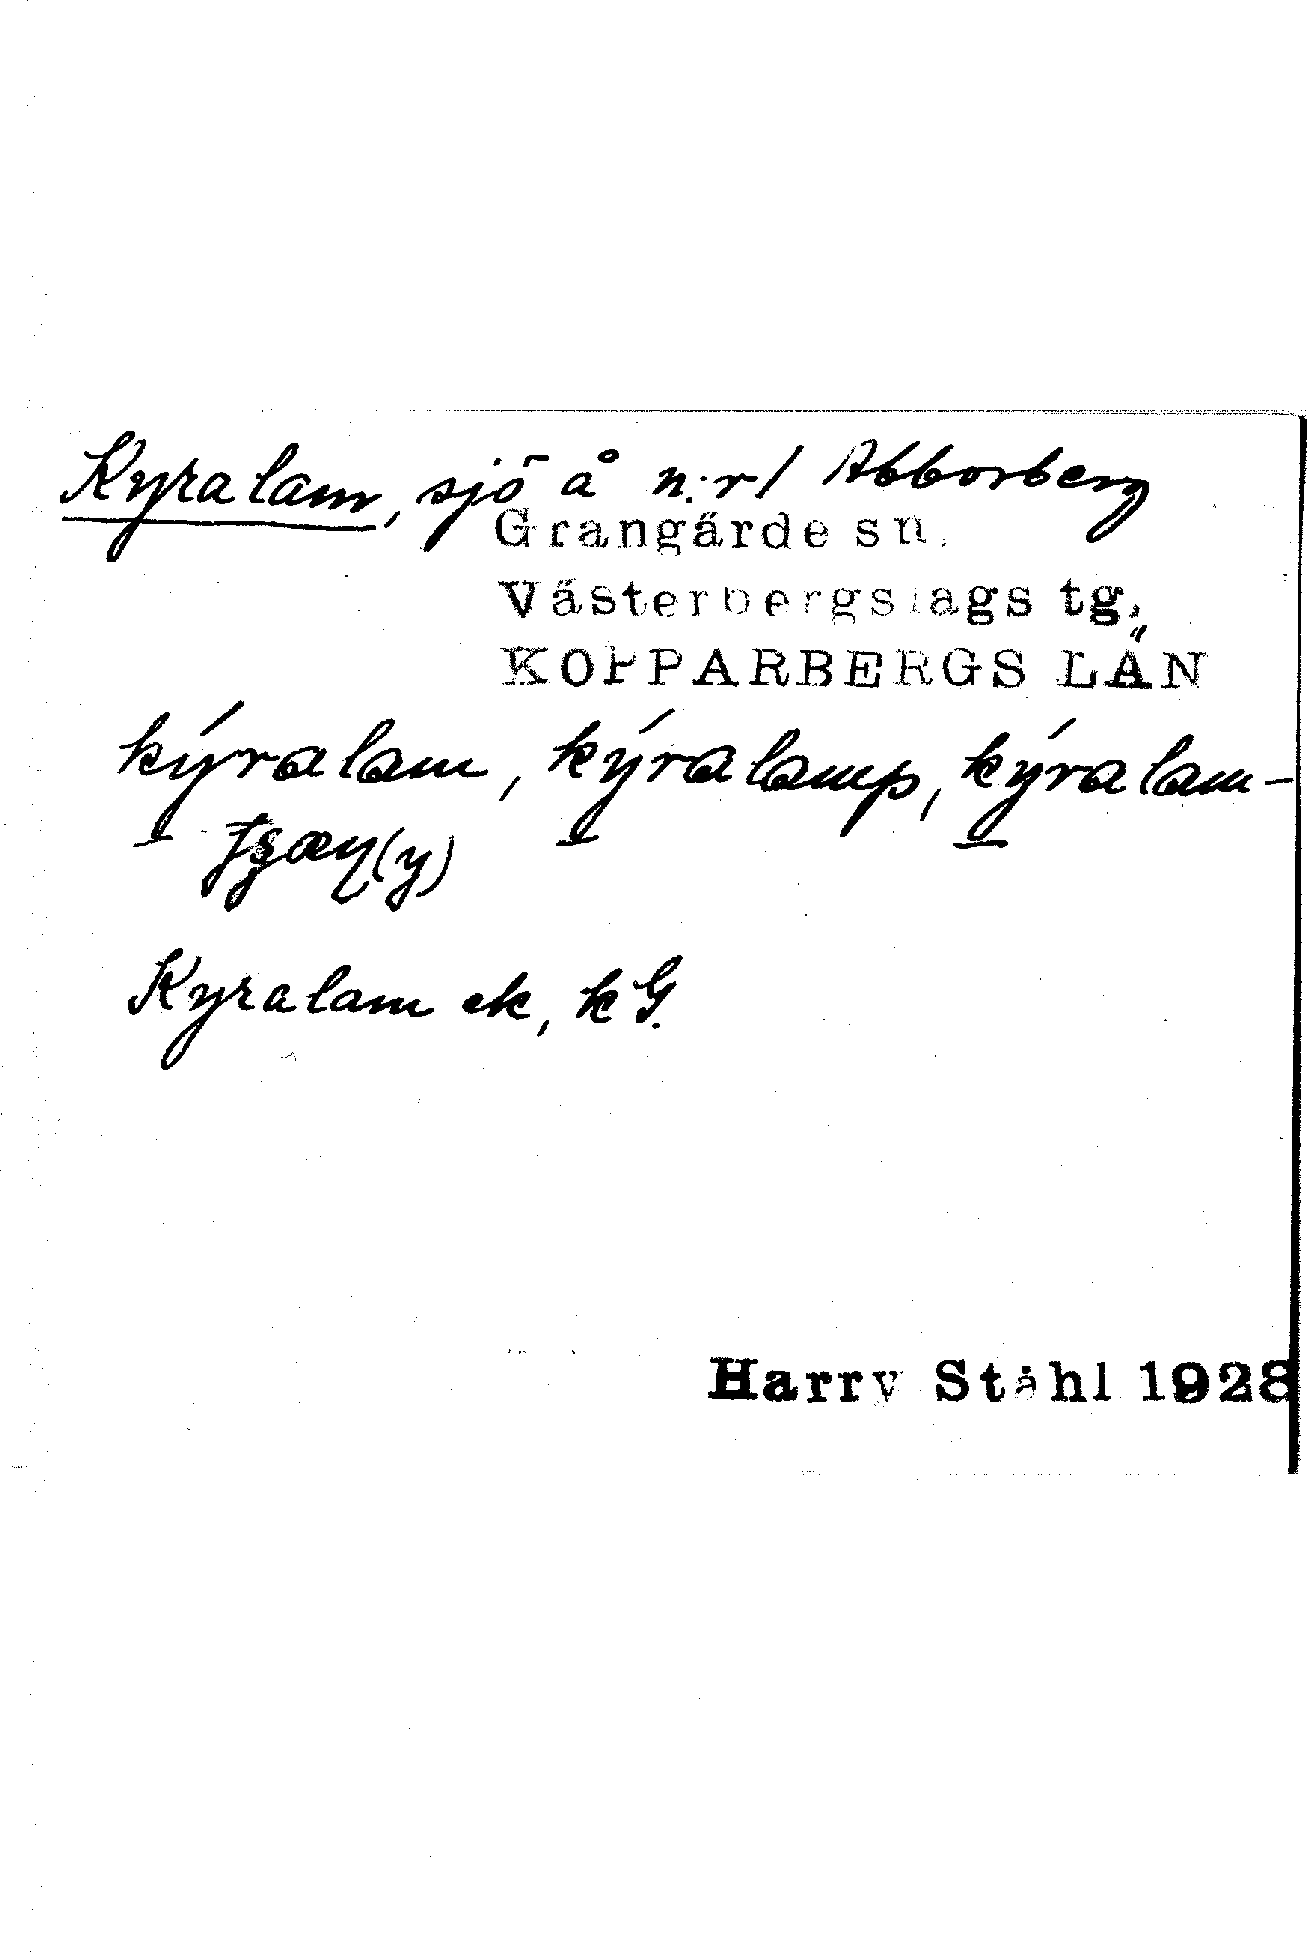 Kyralam, sjö å n:r 1 Abborberg
Grangärde sn.
Västerbergslags tg.
KOPPARBERGS LÄN
kýralam, kýralamp, kýralam-
Kyralam ek, k G.
Harry Ståhl 1928